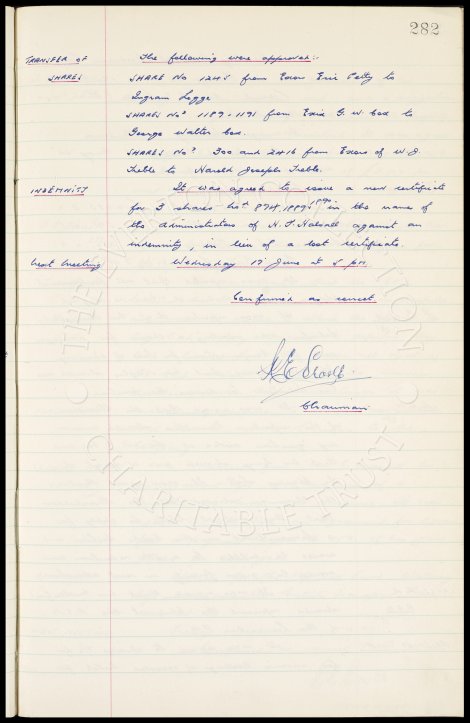 282
TRANSFER OF The following were approved:-
SHARES SHARE No 1245 from Exor Eric Petty to
Ingram Legge
SHARES Nos 1189-1191 from Exix G. W. Cox to
George Walter Cox.
SHARES Nos. 300 and 2416 from Exors of W. J.
Treble to Harold Joseph Treble.
INDEMNITY It was agreed to issue a new certificate
for 3 shares Nos 874, 1889, 1890 in the name of
the administrators of H. J. against an
indemnity, in lieu of a lost certificate.
Next Meeting Wednesday 17 June at 5 pm.
Confirmed as correct
Chairman
CHARITABLE TRUST